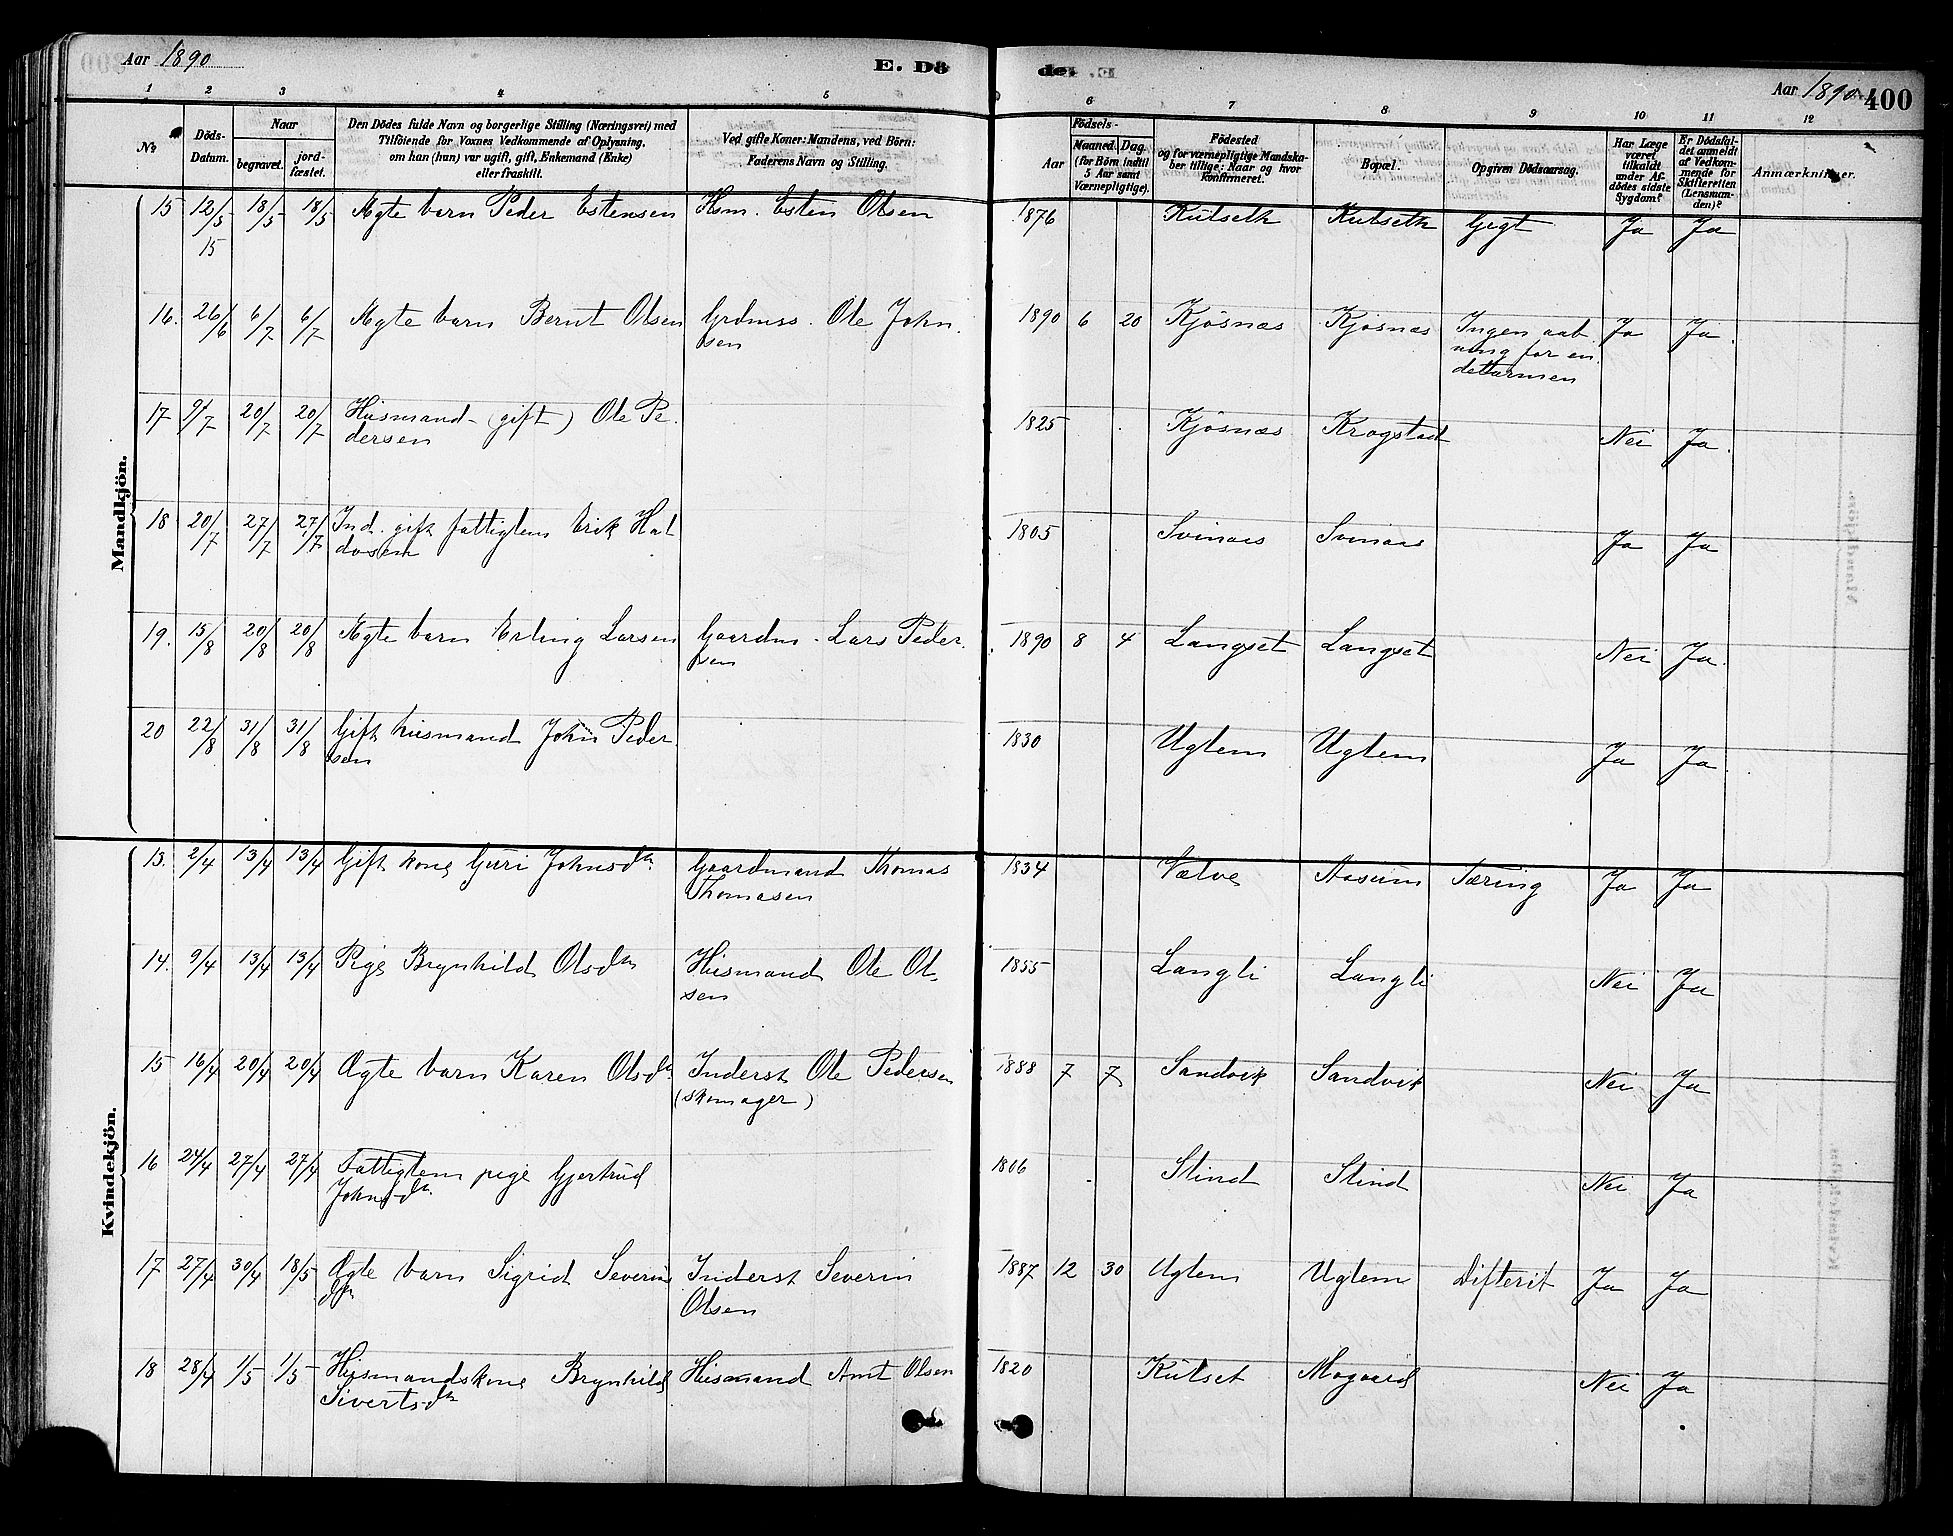 Aar 1890 E. Dö de. Aar 1890. 400
1 2 3 4 5 6 7 8 9 10 11 12
No Döds-Datum. Naar begravet. jord-fæstet. Den Dödes fulde Navn og borgerlige Stilling (Næringsvei) med Tilföiende for Voxnes Vedkommende af Oplysning, om han (hun) var ugift, gift, Enkemand (Enke) eller fraskilt. Ved gifte Koner: Mandens, ved Börn: Faderens Navn og Stilling. Aar Födsels- Maaned. Dag. (for Börn indtil 5 Aar samt Værnepligtige). Födested og for værnepligtige Mandskaber tillige: Naar og hvor konfirmeret. Bopæl. Opgiven Dödsaarsag. Har Læge været tilkaldt under Afdödes sidste Sygdom? Er Dödsfaldet anmeldt af Vedkommende for Skifteretten (Lensmanden)? Anmærkninger.
Mandkjön.
15 12/5 18/5 18/5 Ægte barn Peder Estensen Hsm. Esten Olsen 1876 Kulseth Kulseth Gigt Ja Ja
15
16. 26/6 6/7 6/7 Ægte barn Bernt Olsen Grdmss. Ole John. 1890 6 20 Kjösnæs Kjösnæs Ingen aab Ja Ja.
sen ning for en
dettarmen
17 9/7 20/7 20/7 Husmand (gift) Ole Pe 1825 Kjösnæs Krogstad Nei Ja.
dersen
18 20/7 27/7 27/7 Ind. gift fattiglem Erik Hal 1805 Svinaas Svinaas Ja Ja
dosen
19. 15/8 20/8 20/8 Ægte barn Erling Larsen Gaardm. Lars Peder 1890 8 4 Langset Langset Nei Ja.
sen
20 22/8 31/8 31/8 Gift husmand John Peder 1830 Uglem Uglem Ja Ja.
sen
Kvindekjön.
13. 2/4 13/4 13/4 Gift kone Guri Johnsdr Gaardmand Thomas 1834 Vælve Aasum Tæring Ja Ja
Thomasen
14. 9/4 13/4 13/4 Pige Brynhild Olsdr Husmand Ole Ol 1855 Langli Langli Nei Ja
sen
15 16/4 20/4 20/4 Ægte barn Karen Olsdr Inderst Ole Pedersen 1888 7 7 Sandvik Sandvik Nei Ja
(skomager)
16 24/4 27/4 27/4 Fattiglem pige Gjertrud 1806 Slind Slind Nei Ja
Johnsdr
17 27/4 30/4 18/5 Ægte barn Sigrid Severins Inderst Severin 1887 12 30 Uglem Uglem Difterit Ja Ja
dr Olsen
18 28/4 1/5 1/5 Husmandskone Brynhild Husmand Arnt Olsen 1820 Kulset Mogaard Nei Ja
Sivertsdr